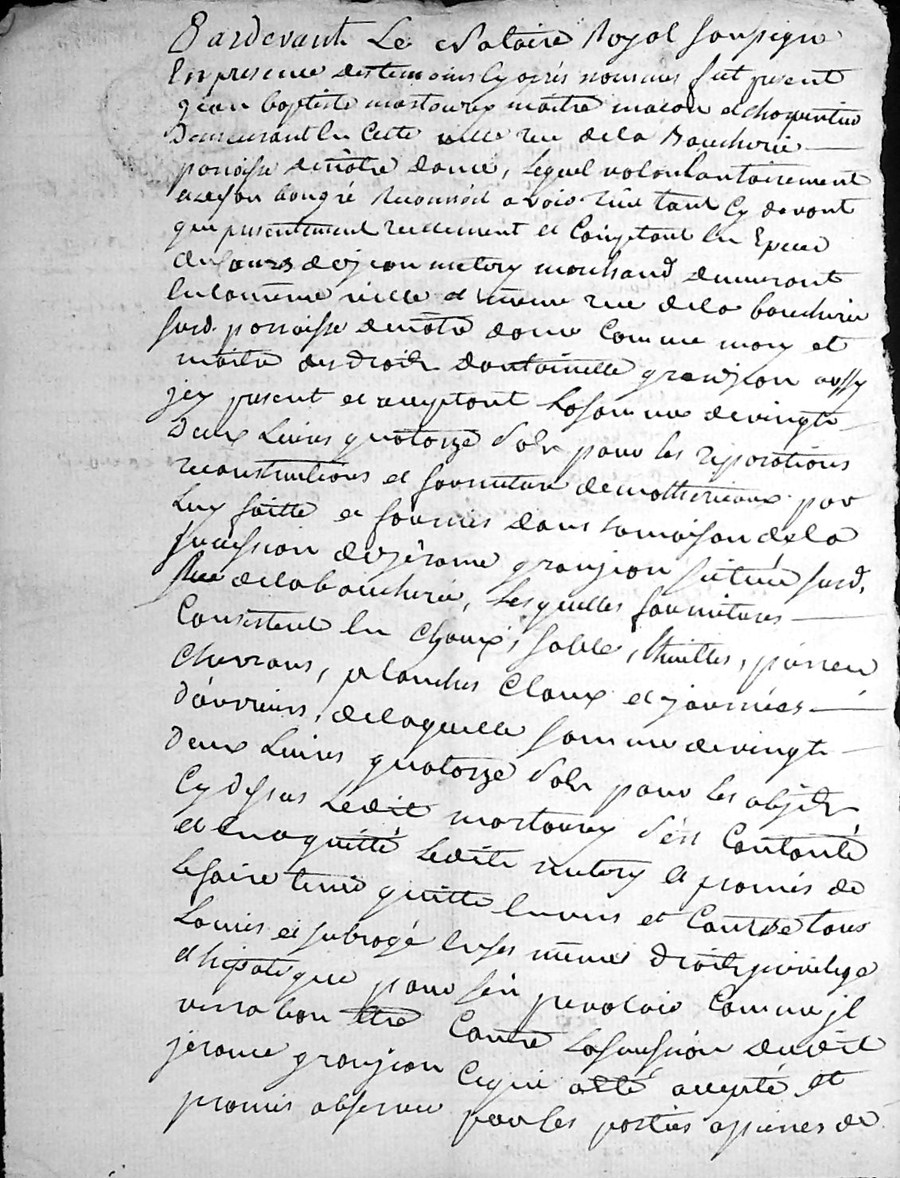 Pardevant Le Notaire Royal soussigné
En presence des temoins cy aprés nommés fut present
jean baptiste mastourey maitre masson et charpentier
Demeurant En Cette ville rue de la Boucherie
paroisse de nôtre dame, Lequel volontairement
et de son bongré reconnoit avoir reçu tant Cy devant
que presentement reellement et Comptant En Espece
de Cours de jean metery marchand demeurant
En la même ville et même rue de la boucherie
susd. paroisse de nôtre dame Comme mary et
maitre des droits dantoinette granjon aussy
jcy present et acceptant La somme de vingt
Deux Livres quatorze sols pour les reparations
reconstructions et fourniture de matherieaux par
Luy faitte et fournies dans la maison de la
succession de jérome granjon scituée susd.
Rue de la boucherie, Lesquelles fournitures
Consistent En Chaux, sable, thuilles, pierres
Chevrons, planches Cloux et journées
D'ouvriers, de laquelle somme de vingt
Deux Livres quatorze sols pour les objets
Cy dessus Ledit mastourey s'est Contanté
et En a quitté Ledit metery et promis de
Le faire tenir quitte Envers et Contre tous
L'a mis et subrogé En ses même droits privilege
et hipoteque pour s'en prevaloir Comme jl
verra bon être Contre La succession dudit
jérome granjon Ce qui a été accepté et
promis observer par les parties a peines de